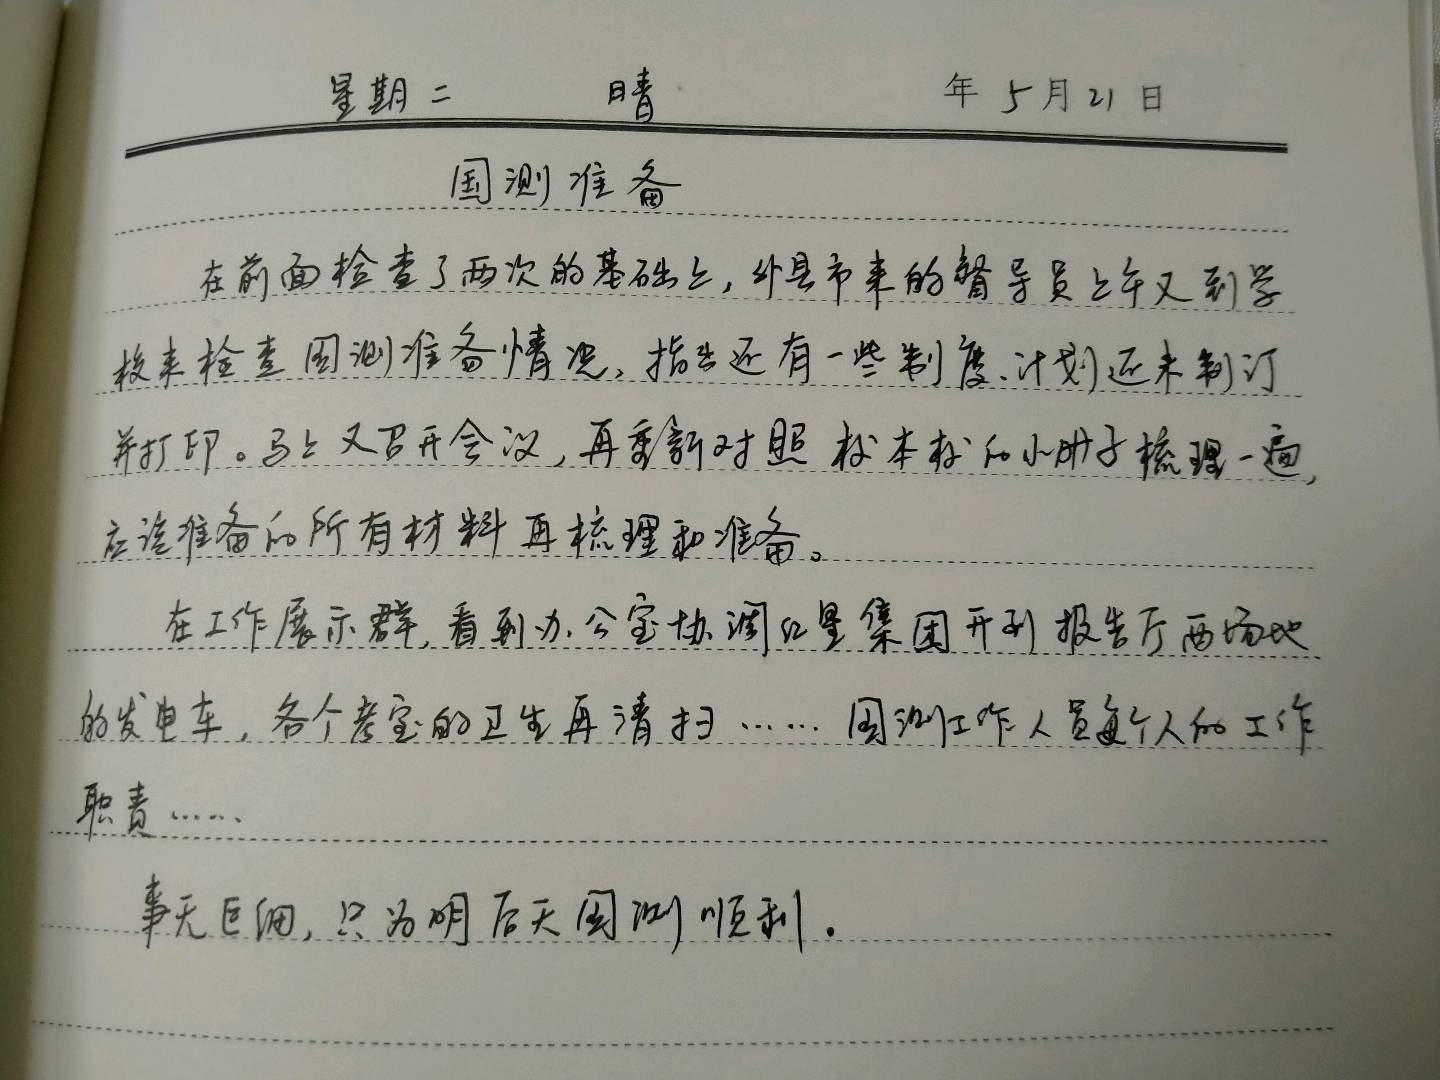 星期二 晴 年5月21日
国测准备
在前面检查了两次的基础上，外县市来的督导员上午又到学
校来检查国测准备情况，指出还有一些制度、计划还未制订
并打印。马上又召开会议，再重新对照校本校的小册子梳理一遍，
应该准备的所有材料再梳理和准备。
在工作展示群，看到办公室协调红星集团开到报告厅两场地
的发电车，各个考室的卫生再清扫……国测工作人员每个人的工作
职责……
事无巨细，只为明后天国测顺利。